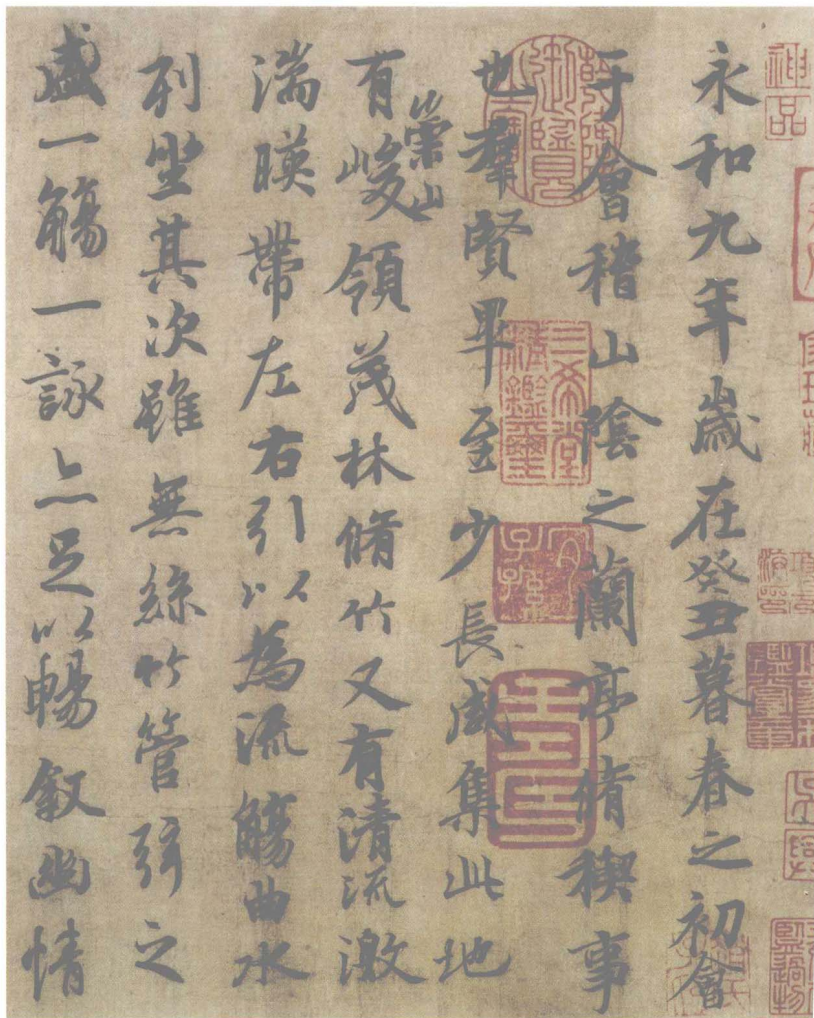 神品
永和九年歲在癸丑暮春之初會
于會稽山陰之蘭亭脩禊事
也羣賢畢至少長咸集此地
有崇山峻領茂林脩竹又有清流激
湍暎帶左右引以為流觴曲水
列坐其次雖無絲竹管弦之
盛一觴一詠亦足以暢敘幽情
三希堂精鑑璽
宜子孫